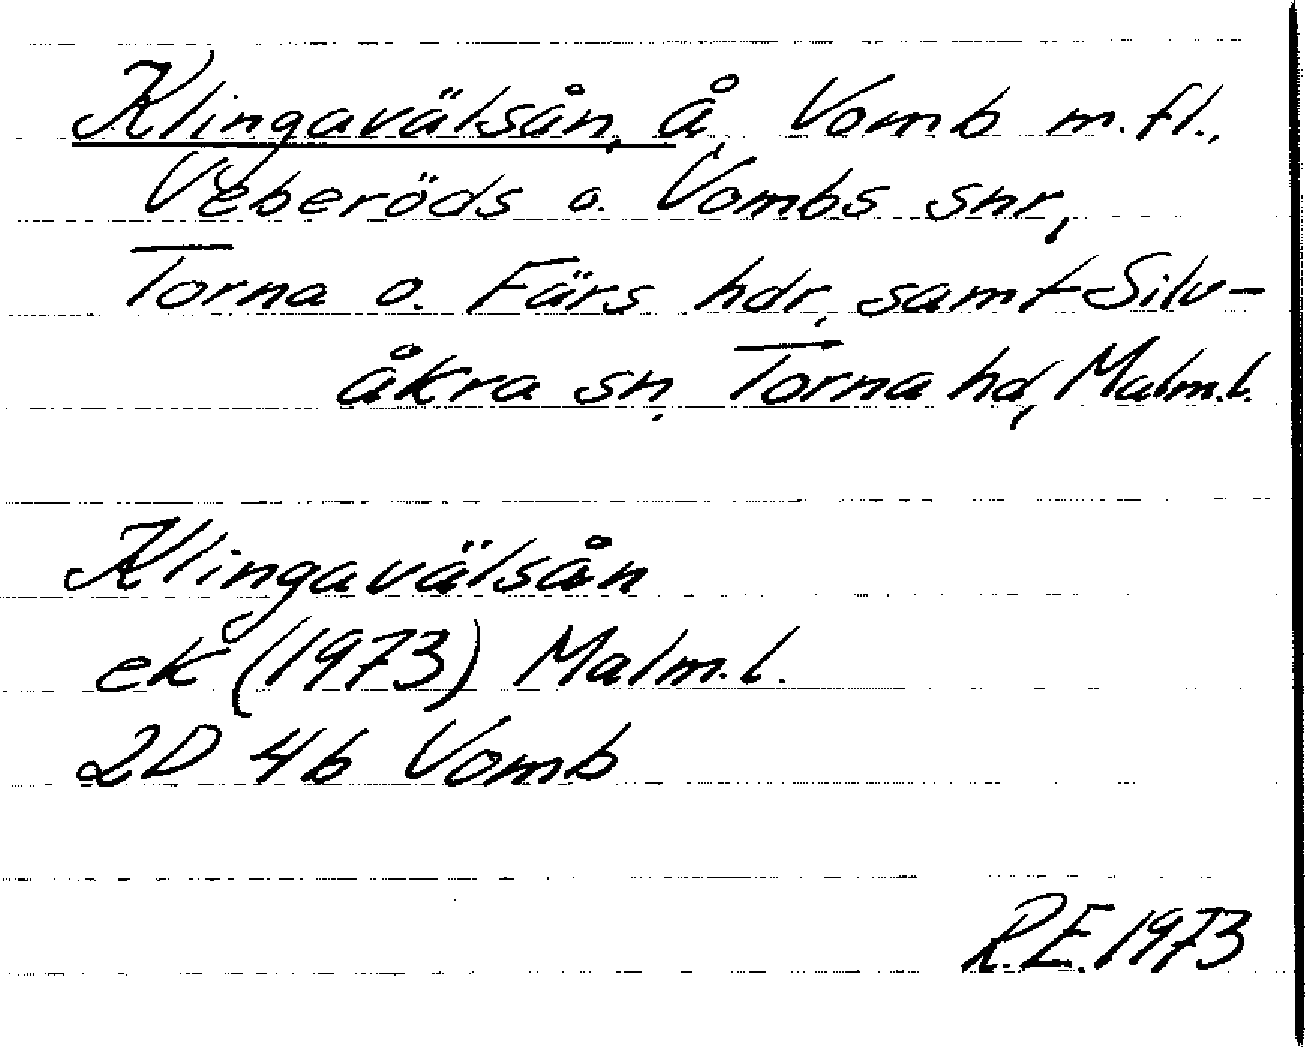 Klingavälsån, å, Vomb m.fl.,
Veberöds o. Vombs snr,
Torna o. Färs hdr, samt Silv-
åkra sn, Torna hd, Malm.l.
Klingavälsån
ek (1973) Malm.l.
2D 4b Vomb
R.E. 1973